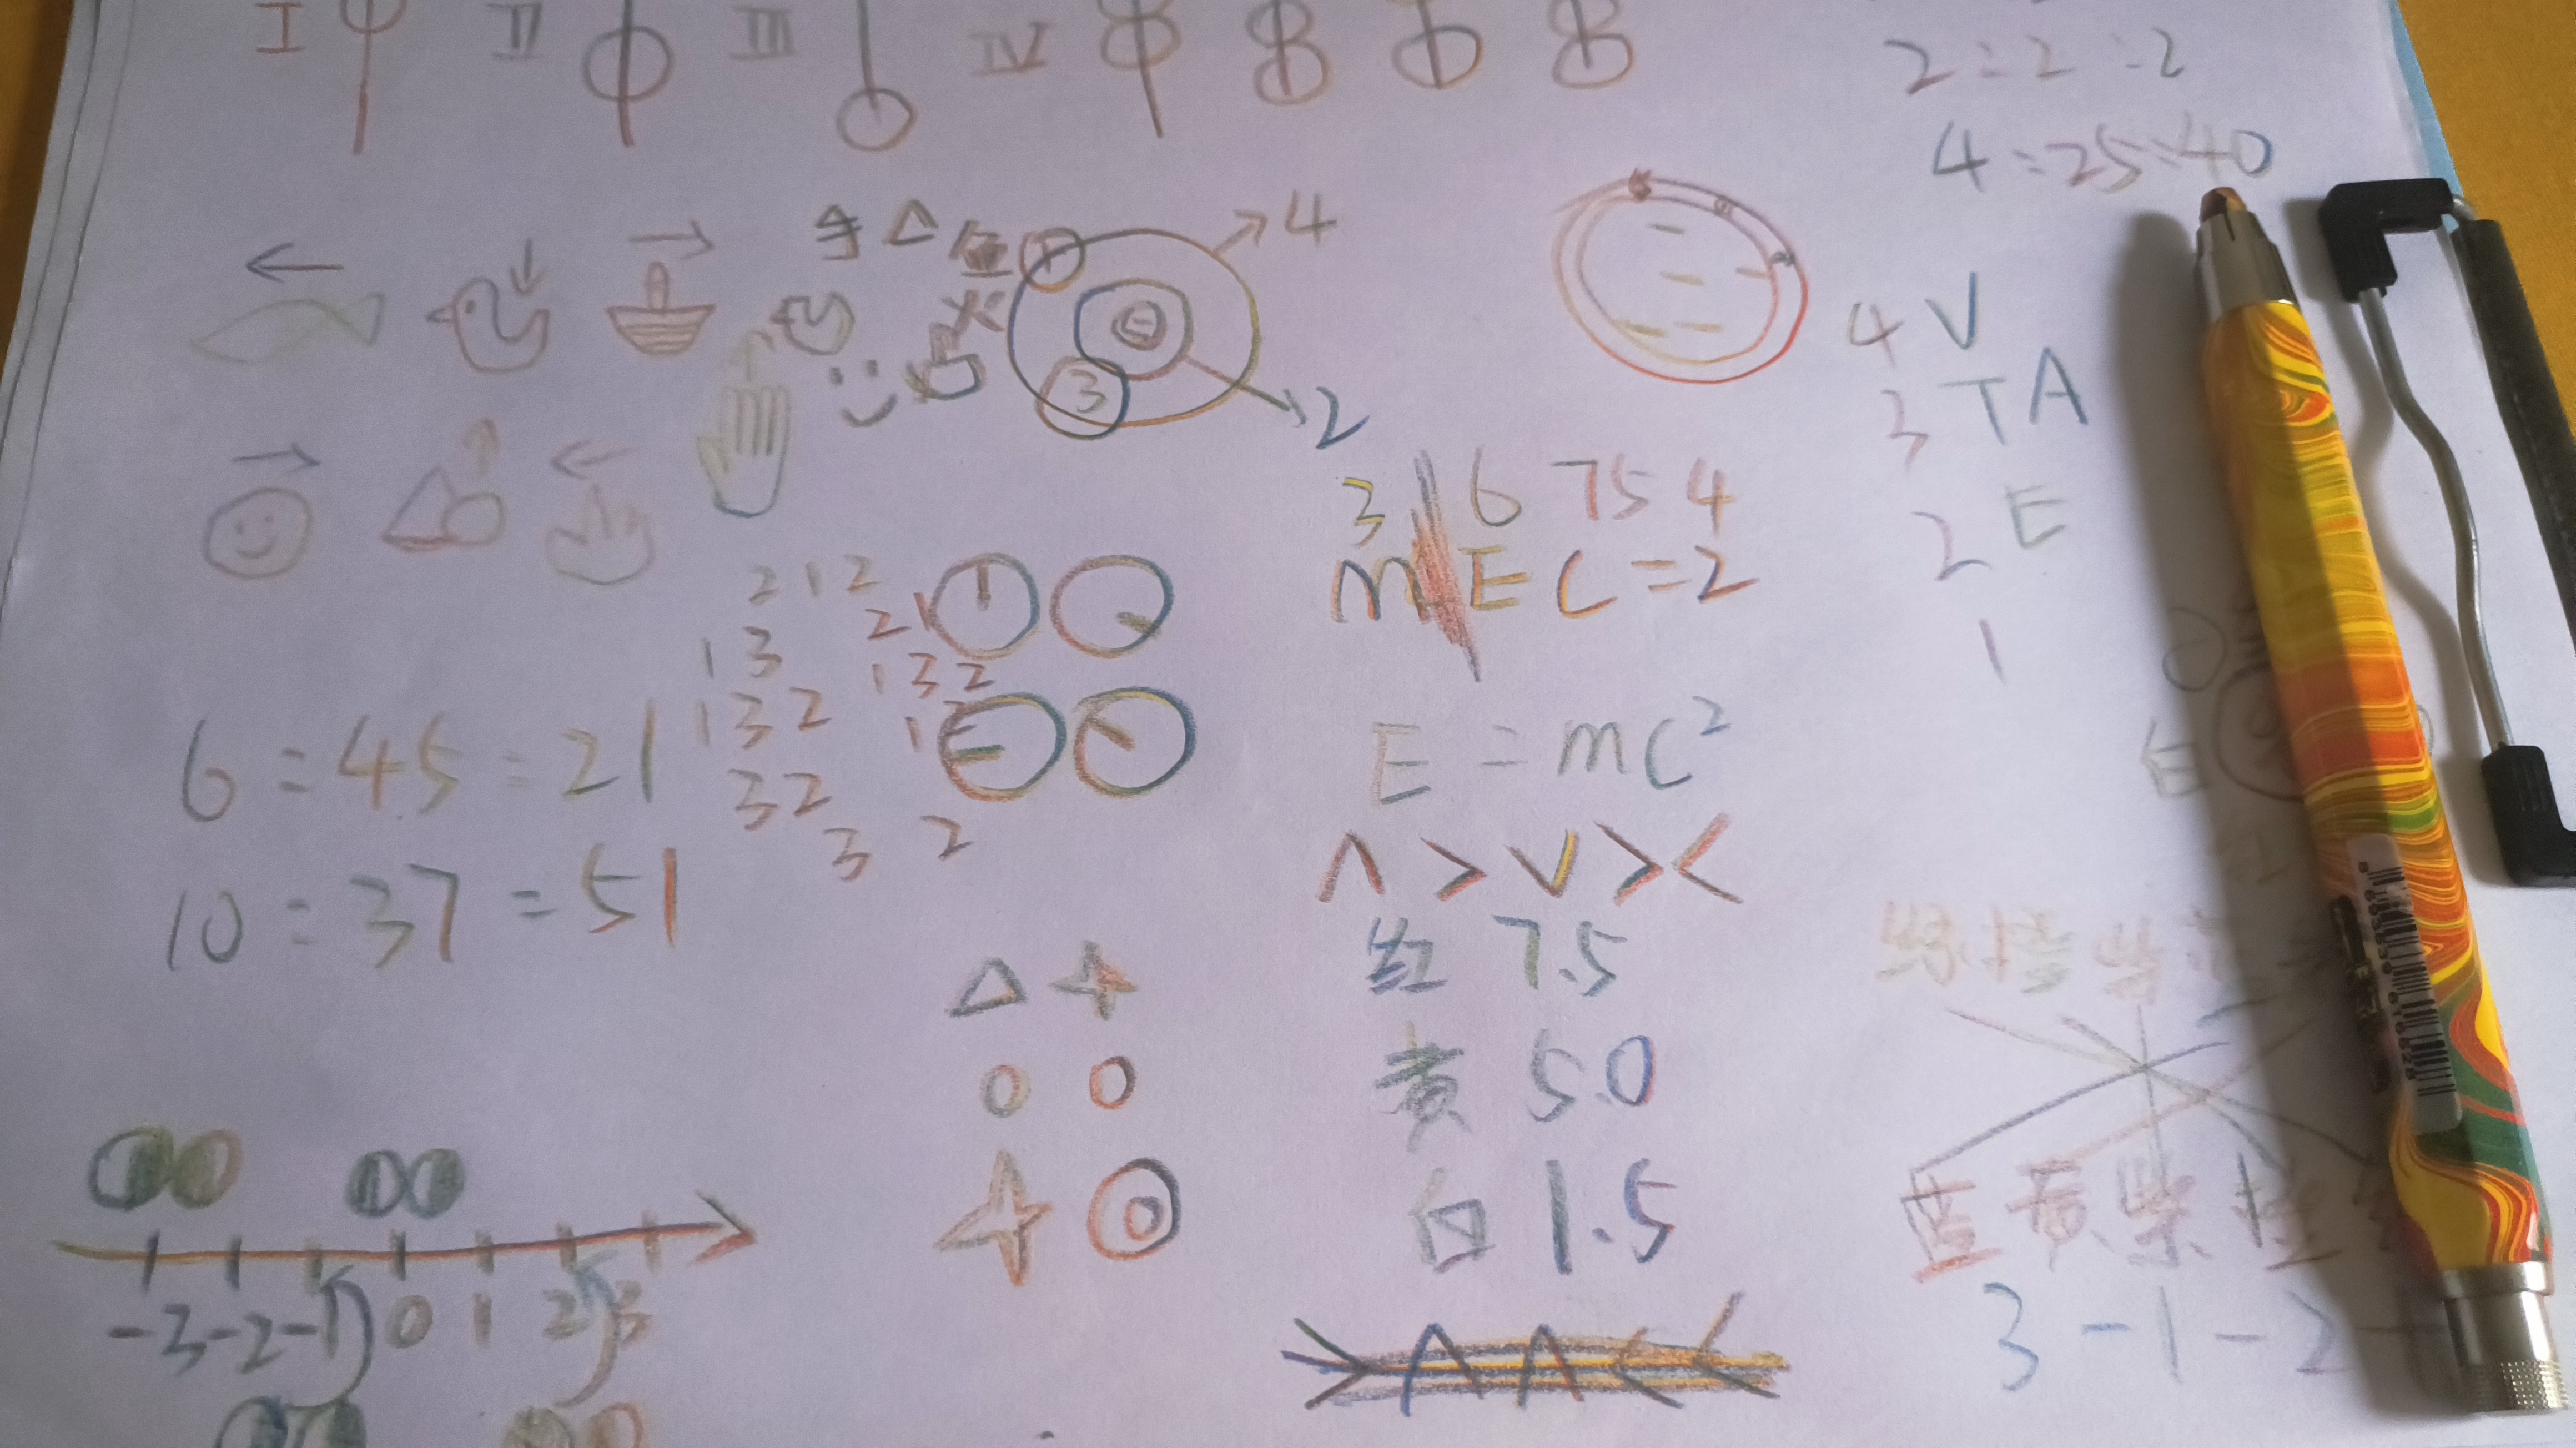 I II III IV
2:2:2
4:25:40
手 △ 鱼
火
1
4
3
2
4 V
3 T A
2 E
1
3 6 75 4
m E C = 2
2 1 2
21
1 3
1 3 2
1 3 2
3 2
3 2
6:45=21
10:37=51
E = mc²
∧ > ∨ > <
红 7.5
黄 5.0
白 1.5
-3 -2 -1 0 1 2 3
蓝 黄 紫 橙
3 - 1 - 2